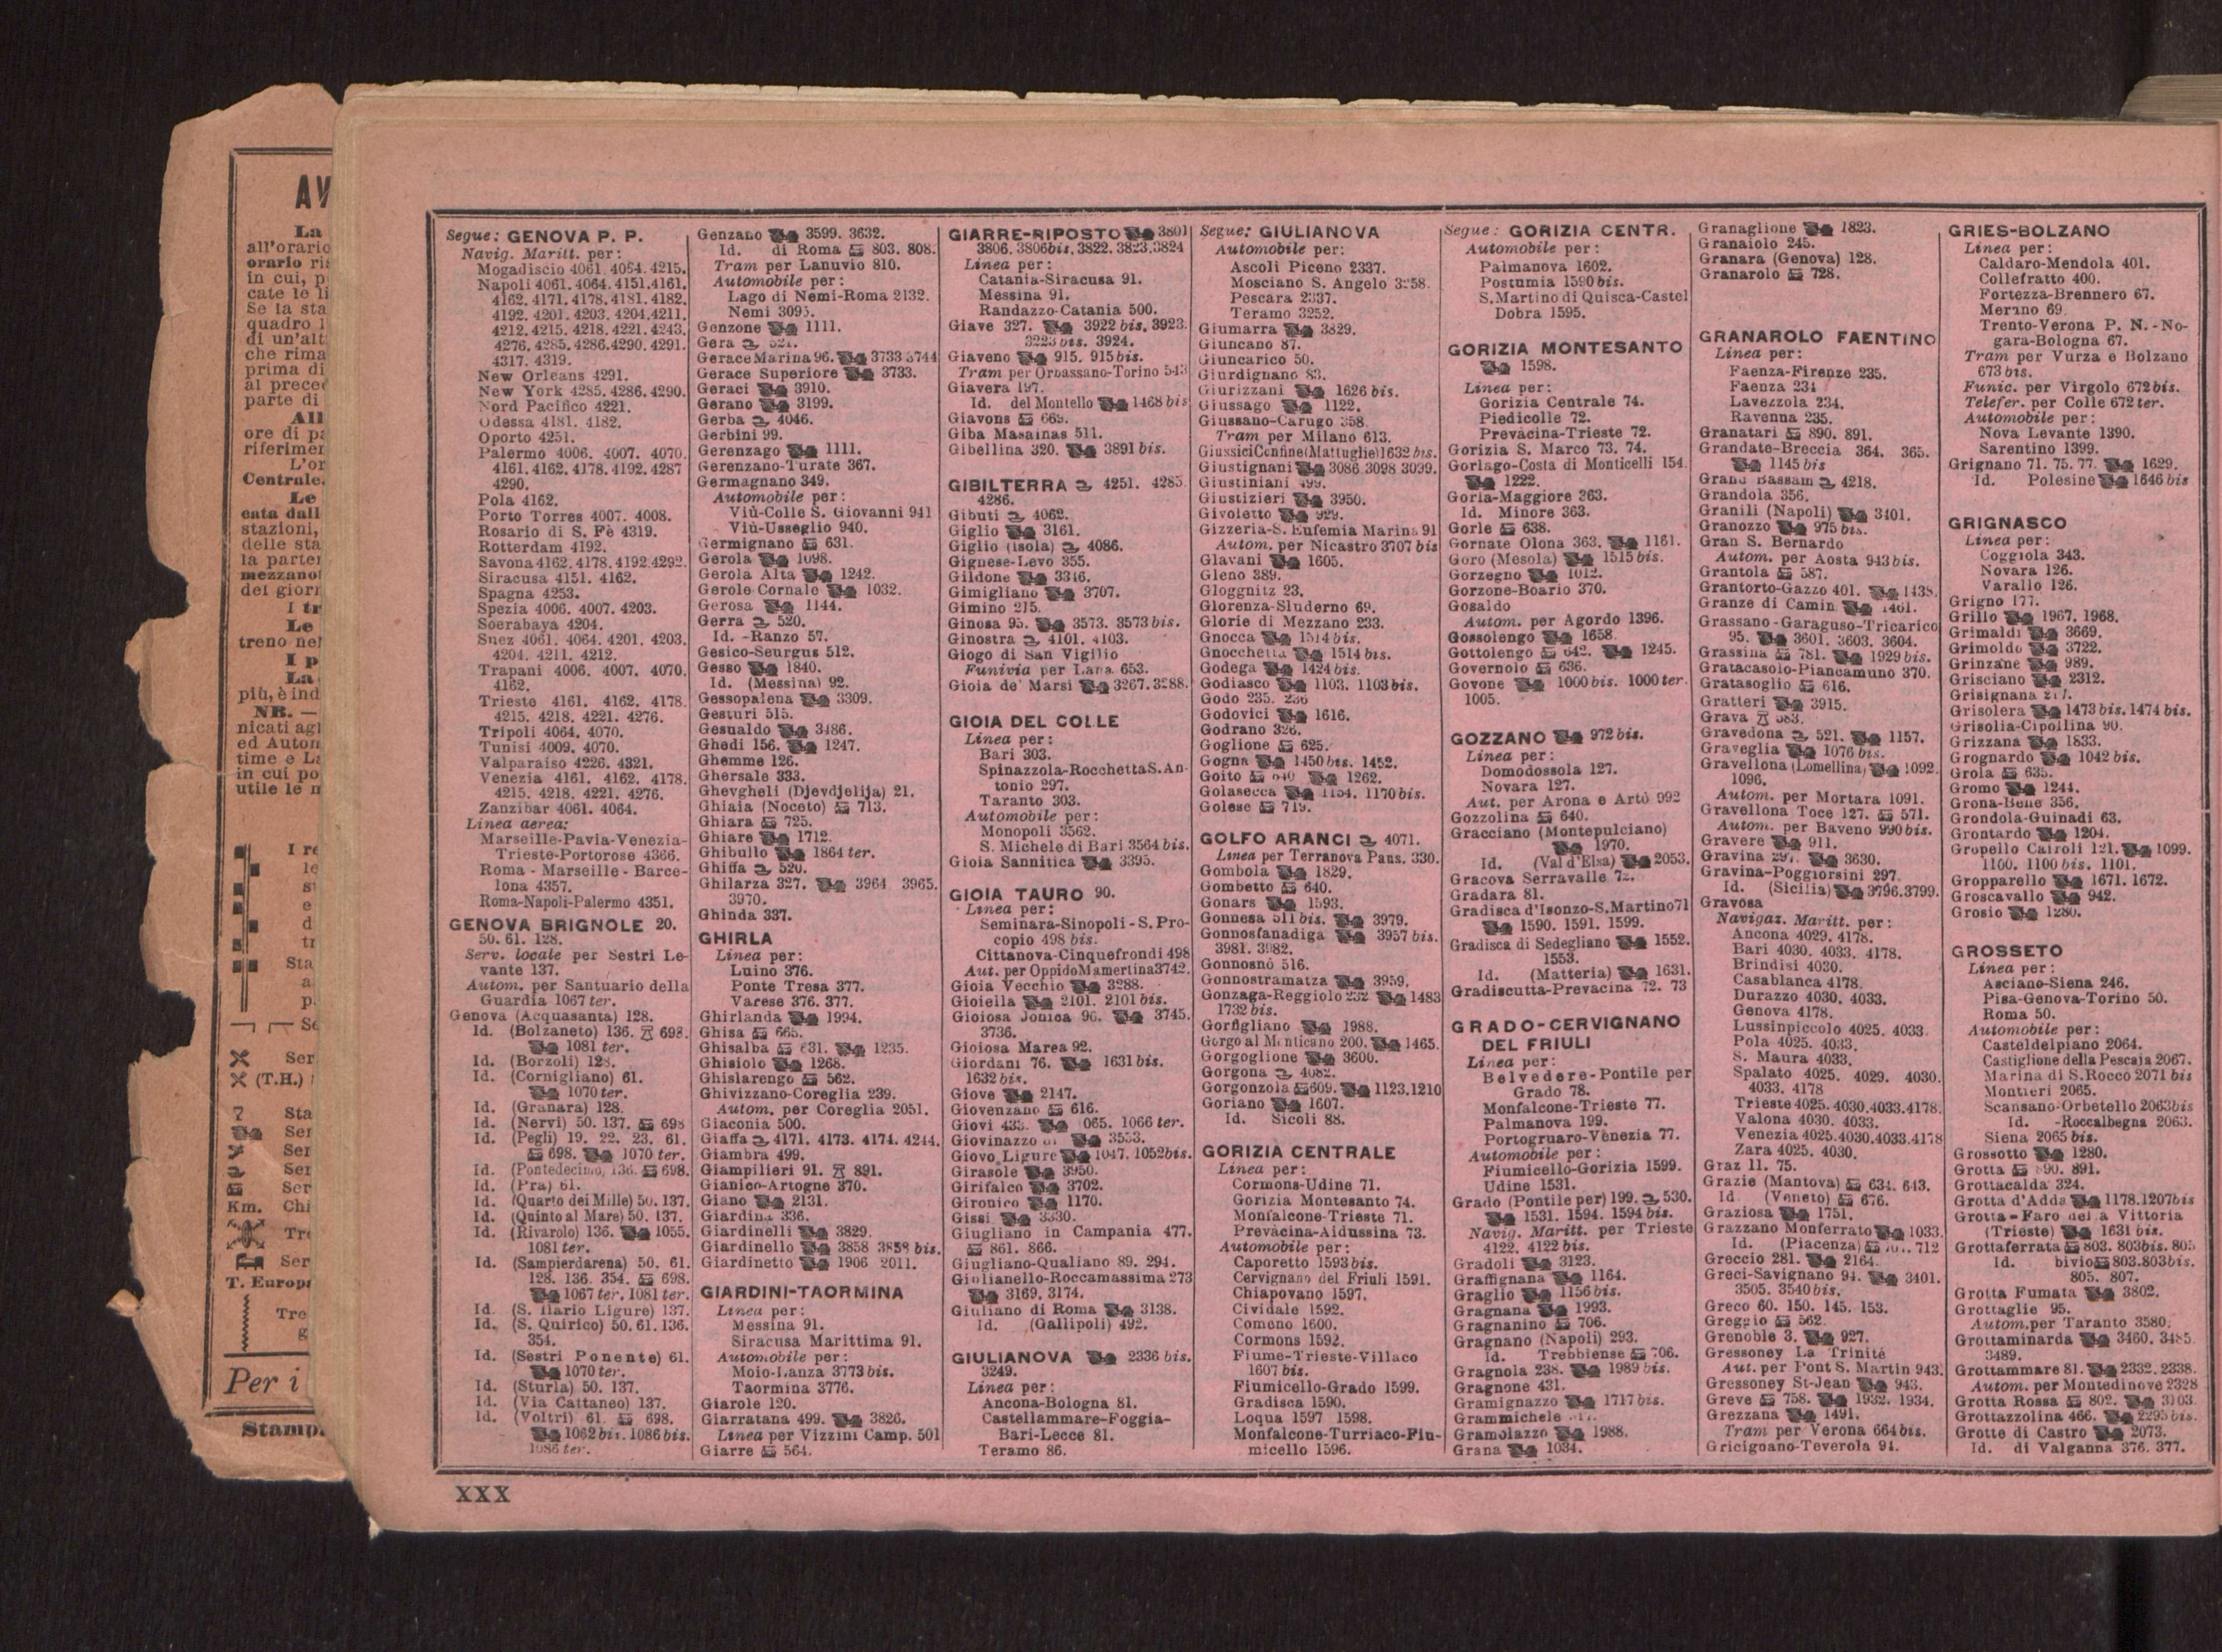 AV
La
all'orario
orario ris
in cui, p
cate le li
Se la sta
quadro 1
di un'alt
che rima
prima di
al preced
parte di
All
ore di pa
riferimen
L'or
Centrale.
Le
cata dall
stazioni,
delle sta
la parten
mezzanot
dei giorn
I tr
Le
treno nel
I p
La
più, è ind
NB. —
nicati agl
ed Auton
time e La
in cui po
utile le n
I re
le
st
e
d
tr
Sta
a
p
Se
Ser
(T.H.)
Sta
Ser
Ser
Ser
Ser
Km. Chi
Tre
Ser
T. Europa
Tre
g
Per i
Stamp.
Segue: GENOVA P. P.
Navig. Maritt. per:
Mogadiscio 4061. 4064. 4215.
Napoli 4061. 4064. 4151. 4161.
4162. 4171. 4178. 4181. 4182.
4192. 4201. 4203. 4204. 4211.
4212. 4215. 4218. 4221. 4243.
4276. 4285. 4286. 4290. 4291.
4317. 4319.
New Orleans 4291.
New York 4285. 4286. 4290.
Nord Pacifico 4221.
Odessa 4181. 4182.
Oporto 4251.
Palermo 4006. 4007. 4070.
4161. 4162. 4178. 4192. 4287
4290.
Pola 4162.
Porto Torres 4007. 4008.
Rosario di S. Fè 4319.
Rotterdam 4192.
Savona 4162. 4178. 4192. 4292.
Siracusa 4151. 4162.
Spagna 4253.
Spezia 4006. 4007. 4203.
Soerabaya 4204.
Suez 4061. 4064. 4201. 4203.
4204. 4211. 4212.
Trapani 4006. 4007. 4070.
4162.
Trieste 4161. 4162. 4178.
4215. 4218. 4221. 4276.
Tripoli 4064. 4070.
Tunisi 4009. 4070.
Valparaiso 4226. 4321.
Venezia 4161. 4162. 4178.
4215. 4218. 4221. 4276.
Zanzibar 4061. 4064.
Linea aerea:
Marseille-Pavia-Venezia-
Trieste-Portorose 4366.
Roma - Marseille - Barce-
lona 4357.
Roma-Napoli-Palermo 4351.
GENOVA BRIGNOLE 20.
50. 61. 128.
Serv. locale per Sestri Le-
vante 137.
Autom. per Santuario della
Guardia 1067 ter.
Genova (Acquasanta) 128.
Id. (Bolzaneto) 136. 698.
1081 ter.
Id. (Borzoli) 128.
Id. (Cornigliano) 61.
1070 ter.
Id. (Granara) 128.
Id. (Nervi) 50. 137. 698
Id. (Pegli) 19. 22. 23. 61.
698. 1070 ter.
Id. (Pontedecimo) 136. 698.
Id. (Pra) 61.
Id. (Quarto dei Mille) 50. 137.
Id. (Quinto al Mare) 50. 137.
Id. (Rivarolo) 136. 1055.
1081 ter.
Id. (Sampierdarena) 50. 61.
128. 136. 354. 698.
1067 ter. 1081 ter.
Id. (S. Ilario Ligure) 137.
Id. (S. Quirico) 50. 61. 136.
354.
Id. (Sestri Ponente) 61.
1070 ter.
Id. (Sturla) 50. 137.
Id. (Via Cattaneo) 137.
Id. (Voltri) 61. 698.
1062 bis. 1086 bis.
1086 ter.
Genzano 3599. 3632.
Id. di Roma 803. 808.
Tram per Lanuvio 810.
Automobile per:
Lago di Nemi-Roma 2132.
Nemi 3095.
Genzone 1111.
Gera 521.
Gerace Marina 96. 3733 3744
Gerace Superiore 3733.
Geraci 3910.
Gerano 3199.
Gerba 4046.
Gerbini 99.
Gerenzago 1111.
Gerenzano-Turate 367.
Germagnano 349.
Automobile per:
Viù-Colle S. Giovanni 941
Viù-Usseglio 940.
Germignano 631.
Gerola 1098.
Gerola Alta 1242.
Gerole Cornale 1032.
Gerosa 1144.
Gerra 520.
Id. -Ranzo 57.
Gesico-Seurgus 512.
Gesso 1840.
Id. (Messina) 92.
Gessopalena 3309.
Gesturi 515.
Gesualdo 3486.
Ghedi 156. 1247.
Ghemme 126.
Ghersale 333.
Ghevgheli (Djevdjelija) 21.
Ghiaia (Noceto) 713.
Ghiara 725.
Ghiare 1712.
Ghibullo 1864 ter.
Ghiffa 520.
Ghilarza 327. 3964 3965.
3970.
Ghinda 337.
GHIRLA
Linea per:
Luino 376.
Ponte Tresa 377.
Varese 376. 377.
Ghirlanda 1994.
Ghisa 665.
Ghisalba 631. 1235.
Ghisiolo 1268.
Ghislarengo 562.
Ghivizzano-Coreglia 239.
Autom. per Coreglia 2051.
Giaconia 500.
Giaffa 4171. 4173. 4174. 4244.
Giambra 499.
Giampilieri 91. 891.
Gianico-Artogne 370.
Giano 2131.
Giardina 336.
Giardinelli 3829.
Giardinello 3858 3858 bis.
Giardinetto 1906 2011.
GIARDINI-TAORMINA
Linea per:
Messina 91.
Siracusa Marittima 91.
Automobile per:
Moio-Lanza 3773 bis.
Taormina 3776.
Giarole 120.
Giarratana 499. 3826.
Linea per Vizzini Camp. 501
Giarre 564.
GIARRE-RIPOSTO 3801
3806. 3806bis. 3822. 3823. 3824
Linea per:
Catania-Siracusa 91.
Messina 91.
Randazzo-Catania 500.
Giave 327. 3922 bis. 3923.
3223 bis. 3924.
Giaveno 915. 915 bis.
Tram per Orbassano-Torino 543
Giavera 197.
Id. del Montello 1468 bis
Giavons 665.
Giba Masainas 511.
Gibellina 320. 3891 bis.
GIBILTERRA 4251. 4285.
4286.
Gibuti 4062.
Giglio 3161.
Giglio (Isola) 4086.
Gignese-Levo 355.
Gildone 3346.
Gimigliano 3707.
Gimino 215.
Ginosa 95. 3573. 3573 bis.
Ginostra 4101. 4103.
Giogo di San Vigilio
Funivia per Lana 653.
Gioia de' Marsi 3267. 3288.
GIOIA DEL COLLE
Linea per:
Bari 303.
Spinazzola-Rocchetta S. An-
tonio 297.
Taranto 303.
Automobile per:
Monopoli 3562.
S. Michele di Bari 3564 bis.
Gioia Sannitica 3395.
GIOIA TAURO 90.
Linea per:
Seminara-Sinopoli - S. Pro-
copio 498 bis.
Cittanova-Cinquefrondi 498
Aut. per Oppido Mamertina 3742.
Gioia Vecchio 3288.
Gioiella 2101. 2101 bis.
Gioiosa Jonica 96. 3745.
3736.
Gioiosa Marea 92.
Giordani 76. 1631 bis.
1632 bis.
Giove 2147.
Giovenzano 616.
Giovi 435. 1065. 1066 ter.
Giovinazzo 3553.
Giovo Ligure 1047. 1052bis.
Girasole 3950.
Girifalco 3702.
Gironico 1170.
Gissi 3330.
Giugliano in Campania 477.
861. 866.
Giugliano-Qualiano 89. 294.
Giulianello-Roccamassima 273
3169. 3174.
Giuliano di Roma 3138.
Id. (Gallipoli) 492.
GIULIANOVA 2336 bis.
3249.
Linea per:
Ancona-Bologna 81.
Castellammare-Foggia-
Bari-Lecce 81.
Teramo 86.
Segue: GIULIANOVA
Automobile per:
Ascoli Piceno 2337.
Mosciano S. Angelo 3258.
Pescara 2337.
Teramo 3252.
Giumarra 3829.
Giuncano 87.
Giuncarico 50.
Giurdignano 83.
Giurizzani 1626 bis.
Giussago 1122.
Giussano-Carugo 358.
Tram per Milano 613.
Giussici Confine (Mattuglie) 1632 bis.
Giustignani 3086. 3098 3099.
Giustiniani 499.
Giustizieri 3950.
Givoletto 929.
Gizzeria-S. Eufemia Marina 91
Autom. per Nicastro 3707 bis
Glavani 1605.
Gleno 389.
Gloggnitz 23.
Glorenza-Sluderno 69.
Glorie di Mezzano 233.
Gnocca 1514 bis.
Gnocchetta 1514 bis.
Godega 1424 bis.
Godiasco 1103. 1103 bis.
Godo 235. 236
Godovici 1616.
Godrano 326.
Goglione 625.
Gogna 1450 bis. 1452.
Goito 640 1262.
Golasecca 1154. 1170 bis.
Golese 719.
GOLFO ARANCI 4071.
Linea per Terranova Paus. 330.
Gombola 1829.
Gombetto 640.
Gonars 1593.
Gonnesa 511 bis. 3979.
Gonnosfanadiga 3957 bis.
3981. 3982.
Gonnosnò 516.
Gonnostramatza 3959.
Gonzaga-Reggiolo 232 1483
1732 bis.
Gorfigliano 1988.
Gorgo al Monticano 200. 1465.
Gorgoglione 3600.
Gorgona 4082.
Gorgonzola 609. 1123. 1210
Goriano 1607.
Id. Sicoli 88.
GORIZIA CENTRALE
Linea per:
Cormons-Udine 71.
Gorizia Montesanto 74.
Monfalcone-Trieste 71.
Prevacina-Aidussina 73.
Automobile per:
Caporetto 1593 bis.
Cervignano del Friuli 1591.
Chiapovano 1597.
Cividale 1592.
Comeno 1600.
Cormons 1592.
Fiume-Trieste-Villaco
1607 bis.
Fiumicello-Grado 1599.
Gradisca 1590.
Loqua 1597 1598.
Monfalcone-Turriaco-Fiu-
micello 1596.
Segue: GORIZIA CENTR.
Automobile per:
Palmanova 1602.
Postumia 1590 bis.
S. Martino di Quisca-Castel
Dobra 1595.
GORIZIA MONTESANTO
1598.
Linea per:
Gorizia Centrale 74.
Piedicolle 72.
Prevacina-Trieste 72.
Gorizia S. Marco 73. 74.
Gorlago-Costa di Monticelli 154.
1222.
Gorla-Maggiore 363.
Id. Minore 363.
Gorle 638.
Gornate Olona 363. 1161.
Goro (Mesola) 1515 bis.
Gorzegno 1012.
Gorzone-Boario 370.
Gosaldo
Autom. per Agordo 1396.
Gossolengo 1658.
Gottolengo 642. 1245.
Governolo 636.
Govone 1000 bis. 1000 ter.
1005.
GOZZANO 972 bis.
Linea per:
Domodossola 127.
Novara 127.
Aut. per Arona e Artò 992
Gozzolina 640.
Gracciano (Montepulciano)
1970.
Id. (Val d'Elsa) 2053.
Gracova Serravalle 72.
Gradara 81.
Gradisca d'Isonzo-S. Martino 71
1590. 1591. 1599.
Gradisca di Sedegliano 1552.
1553.
Id. (Matteria) 1631.
Gradiscutta-Prevacina 72. 73
GRADO-CERVIGNANO
DEL FRIULI
Linea per:
Belvedere-Pontile per
Grado 78.
Monfalcone-Trieste 77.
Palmanova 199.
Portogruaro-Venezia 77.
Automobile per:
Fiumicello-Gorizia 1599.
Udine 1531.
Grado (Pontile per) 199. 530.
1531. 1594. 1594 bis.
Navig. Maritt. per Trieste
4122. 4122 bis.
Gradoli 3123.
Graffignana 1164.
Graglio 1156 bis.
Gragnana 1993.
Gragnanino 706.
Gragnano (Napoli) 293.
Id. Trebbiense 706.
Gragnola 238. 1989 bis.
Gragnone 431.
Gramignazzo 1717 bis.
Grammichele
Gramolazzo 1988.
Grana 1034.
Granaglione 1823.
Granaiolo 245.
Granara (Genova) 128.
Granarolo 728.
GRANAROLO FAENTINO
Linea per:
Faenza-Firenze 235.
Faenza 234
Lavezzola 234.
Ravenna 235.
Granatari 890. 891.
Grandate-Breccia 364. 365.
1145 bis
Grand Bassam 4218.
Grandola 356.
Granili (Napoli) 3401.
Granozzo 975 bis.
Gran S. Bernardo
Autom. per Aosta 943 bis.
Grantola 587.
Grantorto-Gazzo 401. 1438.
Granze di Camin 1461.
Grassano-Garaguso-Tricarico
95. 3601. 3603. 3604.
Grassina 781. 1929 bis.
Gratacasolo-Piancamuno 370.
Gratasoglio 616.
Gratteri 3915.
Grava 583.
Gravedona 521. 1157.
Graveglia 1076 bis.
Gravellona (Lomellina) 1092.
1096.
Autom. per Mortara 1091.
Gravellona Toce 127. 571.
Autom. per Baveno 990 bis.
Gravere 911.
Gravina 297. 3630.
Gravina-Poggiorsini 297.
Id. (Sicilia) 3796. 3799.
Gravosa
Navigaz. Maritt. per:
Ancona 4029. 4178.
Bari 4030. 4033. 4178.
Brindisi 4030.
Casablanca 4178.
Durazzo 4030. 4033.
Genova 4178.
Lussinpiccolo 4025. 4033.
Pola 4025. 4033.
S. Maura 4033.
Spalato 4025. 4029. 4030.
4033. 4178
Trieste 4025. 4030. 4033. 4178.
Valona 4030. 4033.
Venezia 4025. 4030. 4033. 4178
Zara 4025. 4030.
Graz 11. 75.
Grazie (Mantova) 634. 643.
Id (Veneto) 676.
Graziosa 1751.
Grazzano Monferrato 1033.
Id. (Piacenza) 712
Greccio 281. 2164.
Greci-Savignano 94. 3401.
3505. 3540 bis.
Greco 60. 150. 145. 153.
Greggio 562.
Grenoble 3. 927.
Gressoney La Trinité
Aut. per Pont S. Martin 943.
Gressoney St-Jean 943.
Greve 758. 1932. 1934.
Grezzana 1491.
Tram per Verona 664 bis.
Gricignano-Teverola 94.
GRIES-BOLZANO
Linea per:
Caldaro-Mendola 401.
Collefratto 400.
Fortezza-Brennero 67.
Merano 69.
Trento-Verona P. N. - No-
gara-Bologna 67.
Tram per Vurza e Bolzano
673 bis.
Funic. per Virgolo 672 bis.
Telefer. per Colle 672 ter.
Automobile per:
Nova Levante 1390.
Sarentino 1399.
Grignano 71. 75. 77. 1629.
Id. Polesine 1646 bis
GRIGNASCO
Linea per:
Coggiola 343.
Novara 126.
Varallo 126.
Grigno 177.
Grillo 1967. 1968.
Grimaldi 3669.
Grimoldo 3722.
Grinzane 989.
Grisciano 2312.
Grisignana 217.
Grisolera 1473 bis. 1474 bis.
Grisolia-Cipollina 90.
Grizzana 1833.
Grognardo 1042 bis.
Grola 635.
Gromo 1244.
Grona-Bene 356.
Grondola-Guinadi 63.
Grontardo 1204.
Gropello Cairoli 121. 1099.
1100. 1100 bis. 1101.
Gropparello 1671. 1672.
Groscavallo 942.
Grosio 1280.
GROSSETO
Linea per:
Asciano-Siena 246.
Pisa-Genova-Torino 50.
Roma 50.
Automobile per:
Casteldelpiano 2064.
Castiglione della Pescaia 2067.
Marina di S. Rocco 2071 bis
Montieri 2065.
Scansano-Orbetello 2063bis
Id. -Roccalbegna 2063.
Siena 2065 bis.
Grossotto 1280.
Grotta 890. 891.
Grottacalda 324.
Grotta d'Adda 1178. 1207bis
Grotta = Faro della Vittoria
(Trieste) 1631 bis.
Grottaferrata 803. 803bis. 805
Id. bivio 803. 803bis.
805. 807.
Grotta Fumata 3802.
Grottaglie 95.
Autom. per Taranto 3580.
Grottaminarda 3460. 3485.
3489.
Grottammare 81. 2332. 2338.
Autom. per Montedinove 2328
Grotta Rossa 802. 3103.
Grottazzolina 466. 2295 bis.
Grotte di Castro 2073.
Id. di Valganna 376. 377.
XXX